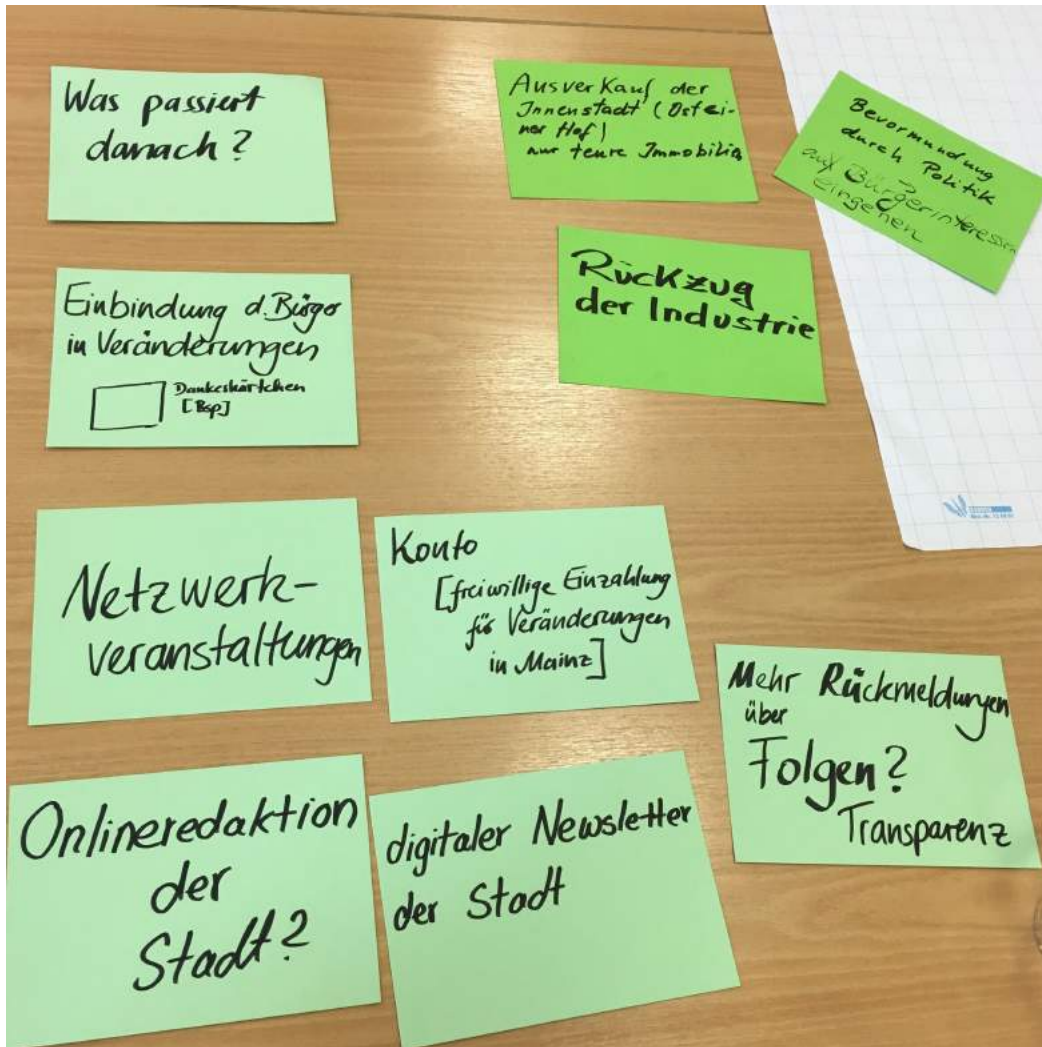 Was passiert
danach?
Ausverkauf der
Innenstadt (Ostei-
ner Hof)
nur teure Immobilien
Bevormundung
durch Politik
auf Bürgerinteressen
eingehen
Einbindung d. Bürger
in Veränderungen
Dankeskärtchen
[Bsp]
Rückzug
der Industrie
Netzwerk-
veranstaltungen
Konto
[freiwillige Einzahlung
für Veränderungen
in Mainz]
Mehr Rückmeldungen
über
Folgen?
Transparenz
Onlineredaktion
der
Stadt?
digitaler Newsletter
der Stadt